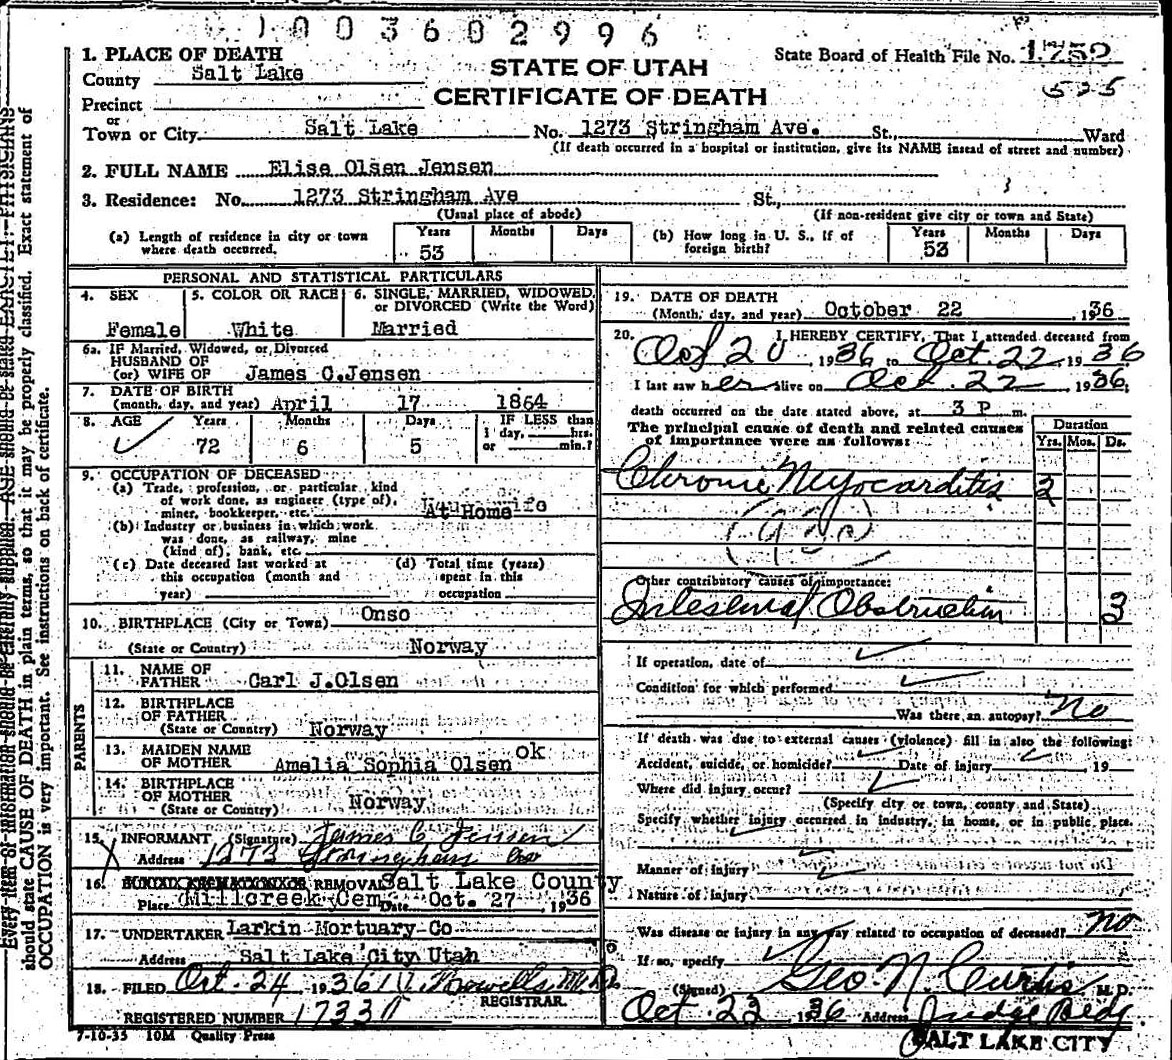 1003602996
1. PLACE OF DEATH
County Salt Lake
STATE OF UTAH
State Board of Health File No. 1752
Precinct
CERTIFICATE OF DEATH
525
or
Town or City Salt Lake No. 1273 Stringham Ave. St., Ward
(If death occurred in a hospital or institution, give its NAME instead of street and number)
2. FULL NAME Elise Olsen Jensen
3. Residence: No. 1273 Stringham Ave St.,
(Usual place of abode) (If non-resident give city or town and State)
(a) Length of residence in city or town where death occurred. Years 53 Months Days
(b) How long in U. S., if of foreign birth? Years 53 Months Days
PERSONAL AND STATISTICAL PARTICULARS
4. SEX Female
5. COLOR OR RACE White
6. SINGLE, MARRIED, WIDOWED, or DIVORCED (Write the Word) Married
6a. IF Married, Widowed, or Divorced
HUSBAND OF
(or) WIFE OF James C.Jensen
7. DATE OF BIRTH
(month, day, and year) April 17 1864
8. AGE Years 72 Months 6 Days 5 IF LESS than 1 day, hrs. or min.?
9. OCCUPATION OF DECEASED
(a) Trade, profession, or particular kind
of work done, as engineer (type of),
miner, bookkeeper, etc. At Home
(b) Industry or business in which work
was done, as railway, mine
(kind of), bank, etc.
(c) Date deceased last worked at
this occupation (month and
year)
(d) Total time (years)
spent in this
occupation
10. BIRTHPLACE (City or Town) Onso
(State or Country) Norway
PARENTS
11. NAME OF
FATHER Carl J.Olsen
12. BIRTHPLACE
OF FATHER
(State or Country) Norway
13. MAIDEN NAME
OF MOTHER Amelia Sophia Olsen ok
14. BIRTHPLACE
OF MOTHER
(State or Country) Norway
15. INFORMANT (Signature) James C Jensen
Address 1273 Stringham Ave
16. REMOVAL Salt Lake County
Place Millcreek Cem Date Oct. 27, 1936
17. UNDERTAKER Larkin Mortuary Co
Address Salt Lake City Utah
18. FILED Oct. 24 1936
REGISTRAR.
REGISTERED NUMBER 17330
7-10-35 10M Quality Press
19. DATE OF DEATH
(Month, day, and year) October 22, 1936
20. I HEREBY CERTIFY, That I attended deceased from
Oct 20, 1936 to Oct. 22, 1936
I last saw her alive on Oct. 22, 1936;
death occurred on the date stated above, at 3 P m.
The principal cause of death and related causes
of importance were as follows:
Duration
Yrs. Mos. Ds.
Chronic Myocarditis
Other contributory causes of importance:
Intestinal Obstruction 3
If operation, date of
Condition for which performed
Was there an autopsy? No
If death was due to external causes (violence) fill in also the following:
Accident, suicide, or homicide? Date of injury 19
Where did injury occur?
(Specify city or town, county and State)
Specify whether injury occurred in industry, in home, or in public place.
Manner of injury
Nature of injury
Was disease or injury in any way related to occupation of deceased? No
If so, specify
(Signed) Geo. N. Curtis M. D.
Oct 23, 1936 Address Judge Bldg
SALT LAKE CITY
should state CAUSE OF DEATH in plain terms, so that it may be properly classified. Exact statement of
OCCUPATION is very important. See instructions on back of certificate.